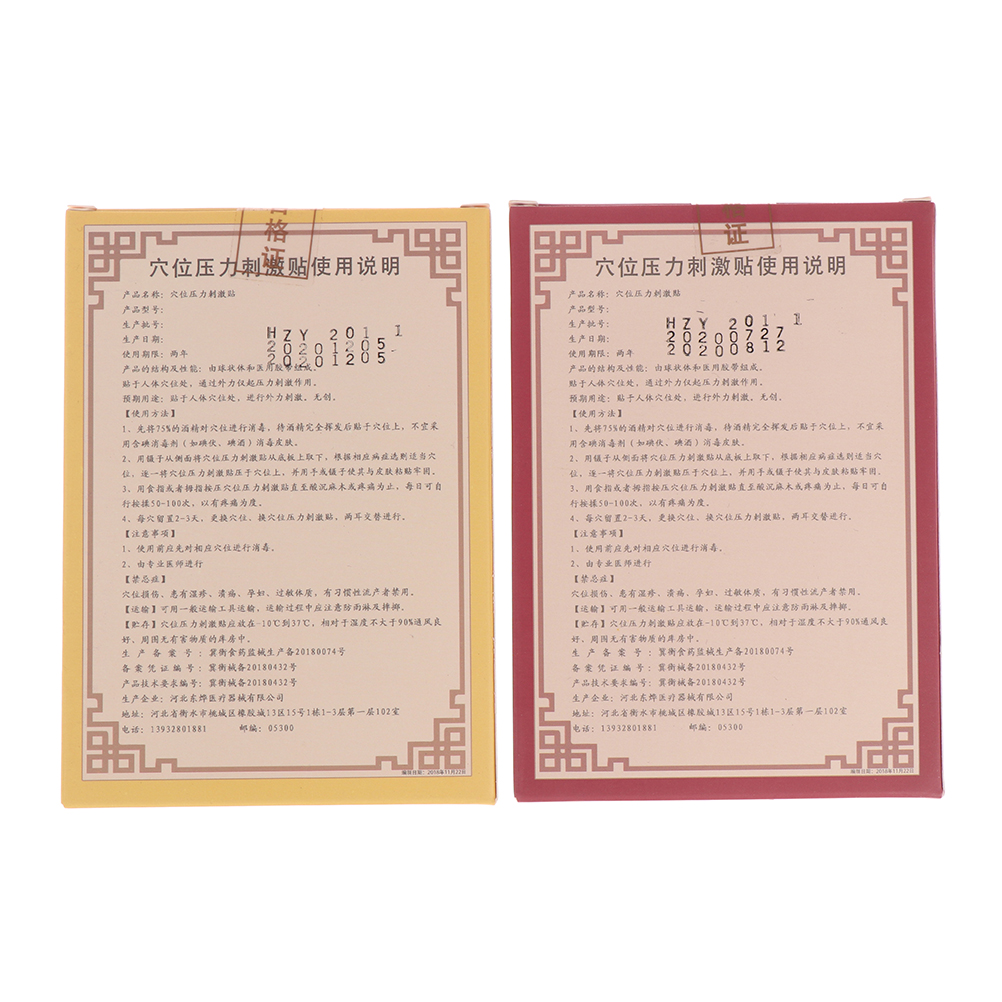 格
证
穴位压力刺激贴使用说明
产品名称：穴位压力刺激贴
产品型号：
生产批号：
生产日期：
使用期限：两年
HZY 2011
20201205
20201205
产品的结构及性能：由球状体和医用胶带组成。
贴于人体穴位处，通过外力仅起压力刺激作用。
预期用途：贴于人体穴位处，进行外力刺激。无创。
【使用方法】
1、先将75%的酒精对穴位进行消毒，待酒精完全挥发后贴于穴位上，不宜采
用含碘消毒剂（如碘伏、碘酒）消毒皮肤。
2、用镊子从侧面将穴位压力刺激贴从底板上取下，根据相应病症选则适当穴
位，逐一将穴位压力刺激贴压于穴位上，并用手或镊子使其与皮肤粘贴牢固。
3、用食指或者拇指按压穴位压力刺激贴直至酸沉麻木或疼痛为止，每日可自
行按揉50-100次，以有疼痛为度。
4、每穴留置2-3天，更换穴位，换穴位压力刺激贴，两耳交替进行。
【注意事项】
1、使用前应先对相应穴位进行消毒。
2、由专业医师进行
【禁忌症】
穴位损伤、患有湿疹、溃疡、孕妇、过敏体质，有习惯性流产者禁用。
【运输】可用一般运输工具运输，运输过程中应注意防雨淋及摔掷。
【贮存】穴位压力刺激贴应放在-10℃到37℃，相对于湿度不大于90%通风良
好、周围无有害物质的库房中。
生产备案号：冀衡食药监械生产备20180074号
备案凭证编号：冀衡械备20180432号
产品技术要求编号：冀衡械备20180432号
生产企业：河北东烨医疗器械有限公司
地址：河北省衡水市桃城区橡胶城13区15号1栋1-3层第一层102室
电话：13932801881 邮编：05300
编写日期：2018年11月22日
格
证
穴位压力刺激贴使用说明
产品名称：穴位压力刺激贴
产品型号：
生产批号：
生产日期：
使用期限：两年
HZY 2011
20200727
20200812
产品的结构及性能：由球状体和医用胶带组成。
贴于人体穴位处，通过外力仅起压力刺激作用。
预期用途：贴于人体穴位处，进行外力刺激。无创。
【使用方法】
1、先将75%的酒精对穴位进行消毒，待酒精完全挥发后贴于穴位上，不宜采
用含碘消毒剂（如碘伏、碘酒）消毒皮肤。
2、用镊子从侧面将穴位压力刺激贴从底板上取下，根据相应病症选则适当穴
位，逐一将穴位压力刺激贴压于穴位上，并用手或镊子使其与皮肤粘贴牢固。
3、用食指或者拇指按压穴位压力刺激贴直至酸沉麻木或疼痛为止，每日可自
行按揉50-100次，以有疼痛为度。
4、每穴留置2-3天，更换穴位，换穴位压力刺激贴，两耳交替进行。
【注意事项】
1、使用前应先对相应穴位进行消毒。
2、由专业医师进行
【禁忌症】
穴位损伤、患有湿疹、溃疡、孕妇、过敏体质，有习惯性流产者禁用。
【运输】可用一般运输工具运输，运输过程中应注意防雨淋及摔掷。
【贮存】穴位压力刺激贴应放在-10℃到37℃，相对于湿度不大于90%通风良
好、周围无有害物质的库房中。
生产备案号：冀衡食药监械生产备20180074号
备案凭证编号：冀衡械备20180432号
产品技术要求编号：冀衡械备20180432号
生产企业：河北东烨医疗器械有限公司
地址：河北省衡水市桃城区橡胶城13区15号1栋1-3层第一层102室
电话：13932801881 邮编：05300
编写日期：2018年11月22日